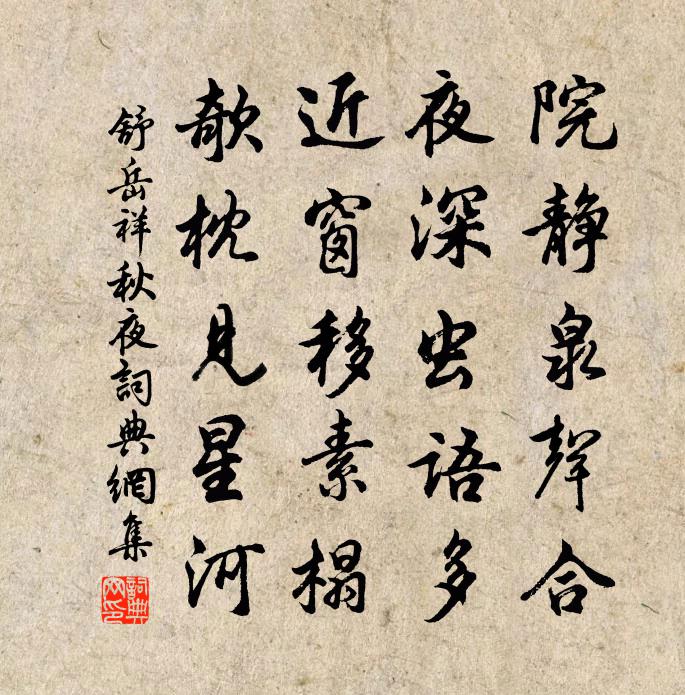 院静泉聲合
夜深虫语多
近窗移素榻
欹枕見星河
舒岳祥秋夜詞典網集
詞典网印